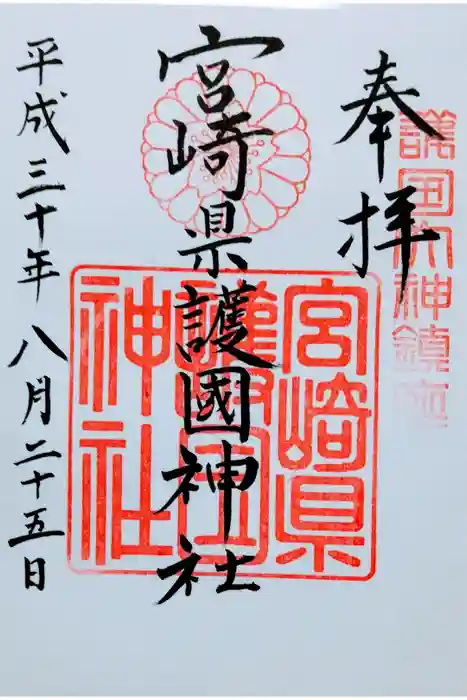 奉拝
護国の神鎮座
宮崎県護國神社
宮崎県
護国
神社
平成三十年八月二十五日